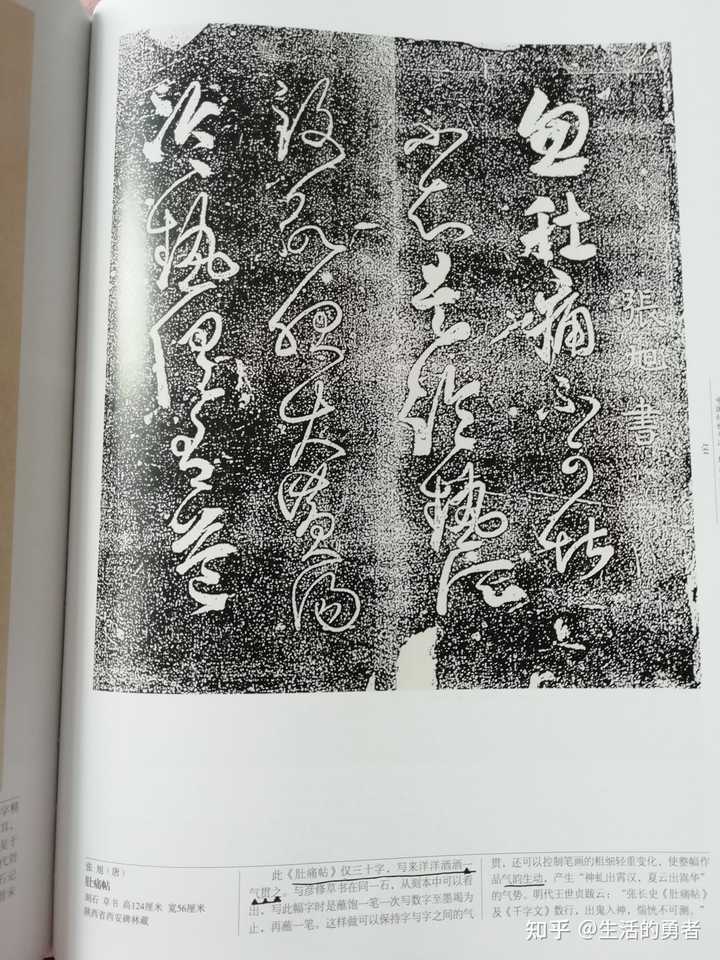 張旭書
忽肚痛不可堪
不知是冷熱所
致欲服大黃湯
冷熱俱有益
五
张 旭（唐）
肚痛帖
刻石 草书 高124厘米 宽56厘米
陕西省西安碑林藏
此《肚痛帖》仅三十字，写来洋洋洒洒一
气贯之。与彦修草书在同一石，从刻本中可以看
出，写此幅字时是蘸饱一笔一次写数字至墨竭为
止，再蘸一笔。这样做可以保持字与字之间的气
贯，还可以控制笔画的粗细轻重变化，使整幅作
品气韵生动，产生“神虬出霄汉，夏云出嵩华”
的气势。明代王世贞跋云：“张长史《肚痛帖》
及《千字文》数行，出鬼入神，惝恍不可测。”
知乎 @生活的勇者